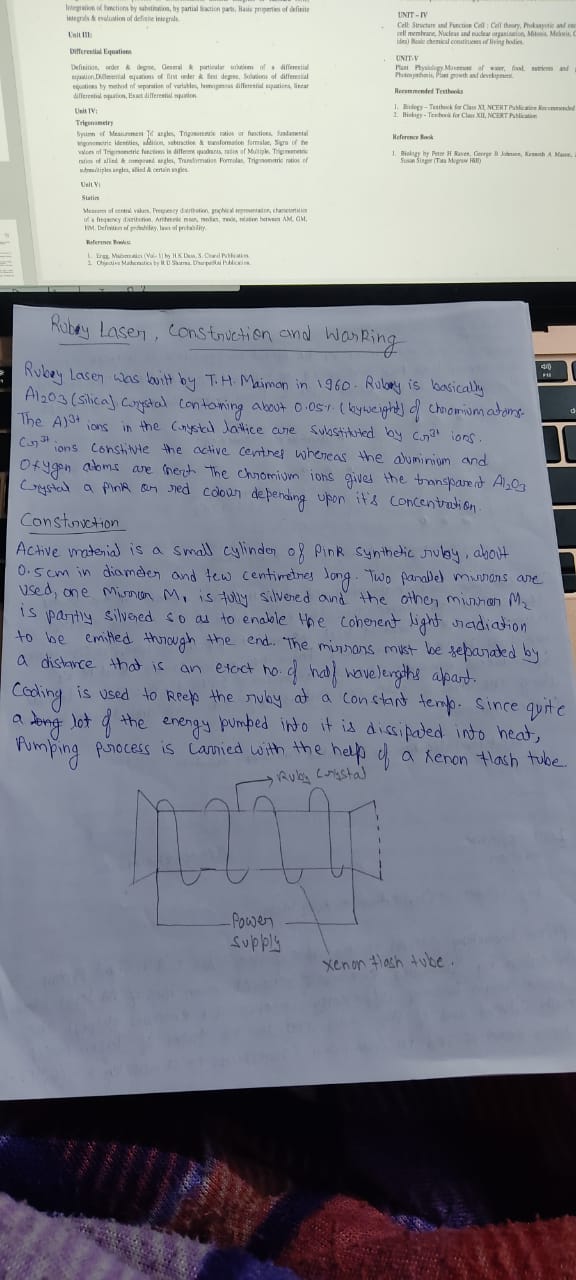 Integration of functions by substitution, by partial fraction parts. Basic properties of definite
integrals & evaluation of definite integrals.
Unit III:
Differential Equations
Definition, order & degree, General & particular solutions of a differential
equation. Differential equations of first order & first degree, Solutions of differential
equations by method of separation of variables, homogenous differential equations, linear
differential equation, Exact differential equation.
Unit IV:
Trigonometry
System of Measurement of angles, Trigonometric ratios or functions, fundamental
trigonometric identities, addition, subtraction & transformation formulae, Signs of the
values of Trigonometric functions in different quadrants, ratios of Multiple, Trigonometric
ratios of allied & compound angles, Transformation Formulas, Trigonometric ratios of
submultiples angles, allied & certain angles.
Unit V:
Statics
Measures of central values, Frequency distribution, graphical representation, characteristics
of a frequency distribution. Arithmetic mean, median, mode, relation between AM, GM,
HM. Definition of probability, laws of probability.
Reference Books:
1. Engg. Mathematics (Vol- I) by H.K Dass, S. Chand Publication.
2. Objective Mathematics by R D Sharma, Dhanpat Rai Publication.
UNIT – IV
Cell: Structure and Function Cell : Cell theory, Prokaryotic and
cell membrane, Nucleus and nuclear organization, Mitosis, Meiosis, C
idea) Basic chemical constituents of living bodies.
UNIT-V
Plant Physiology Movement of water, food, nutrients and
Photosynthesis, Plant growth and development.
Recommended Textbooks
1. Biology – Textbook for Class XI, NCERT Publication Recommended
2. Biology - Textbook for Class XII, NCERT Publication
Reference Book
1. Biology by Peter H Raven, George B Johnson, Kenneth A Mason,
Susan Singer (Tata Mcgraw Hill)
Rubey Laser, Construction and Warking
Rubey Laser was built by T.H. Maiman in 1960. Rubey is basically
Al2O3 (silica) Crystal containing about 0.05% (by weight) of chromium atoms.
The Al3+ ions in the Crystal lattice are substituted by Cr3+ ions.
Cr3+ ions constitute the active centres whereas the aluminium and
Oxygen atoms are inert. The chromium ions gives the transparent Al2O3
Crystal a pink or red colour depending upon it's concentration.
Construction
Active material is a small cylinder of Pink synthetic ruby, about
0.5cm in diameter and few centimetres long. Two parallel mirrors are
used, one Mirror M1 is fully silvered and the other mirror M2
is partly silvered so as to enable the coherent light radiation
to be emitted through the end. The mirrors must be separated by
a distance that is an exact no. of half wavelengths apart.
Cooling is used to keep the ruby at a constant temp. since quite
a long lot of the energy pumped into it is dissipated into heat,
Pumping process is carried with the help of a Xenon flash tube.
Ruby Crystal
Power
supply
Xenon flash tube.